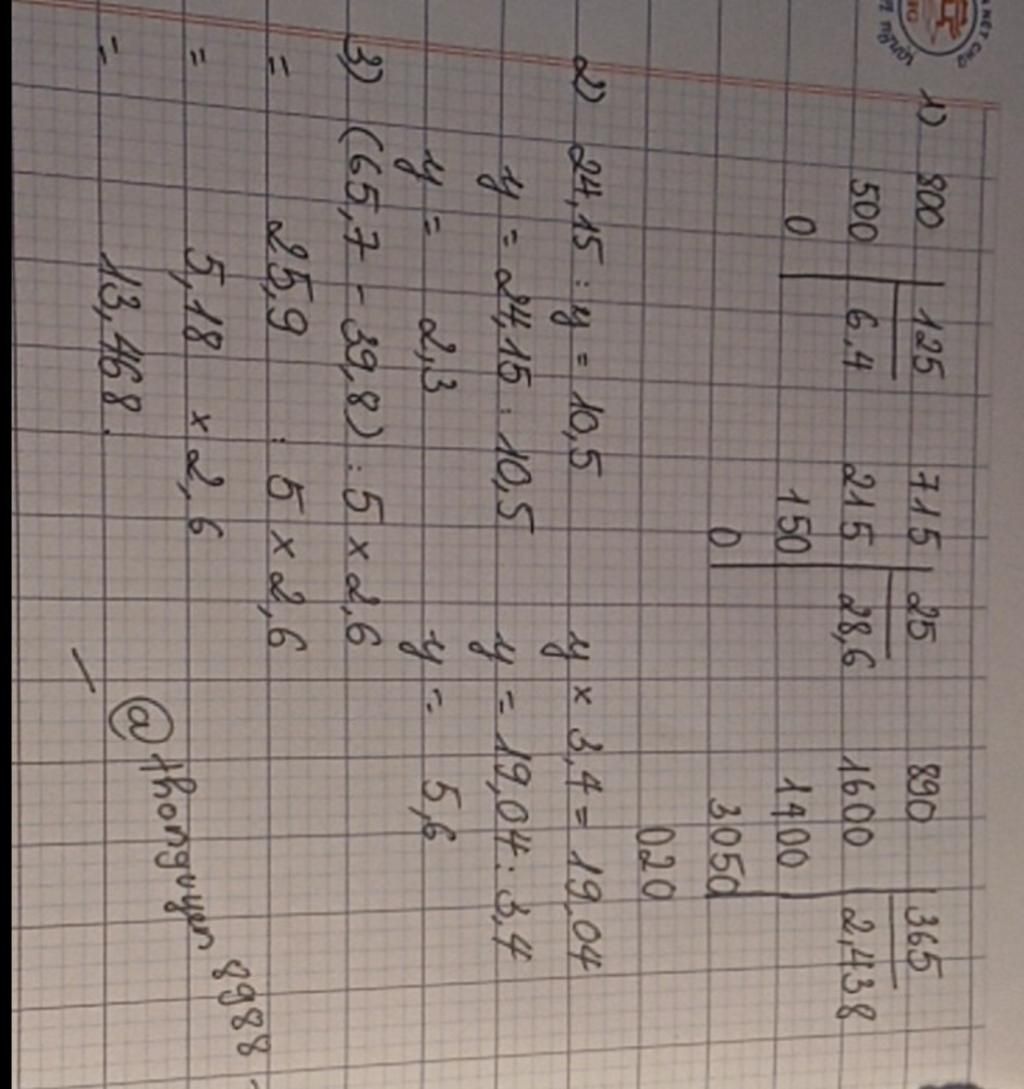 1) 800 | 125 715 | 25 890 | 365
500 | 6.4 215 | 28,6 1600 | 2,438
0 150 1400
0 3050
020
2) 24,15 : y = 10,5 y x 3,4 = 19,04
y = 24,15 : 10,5 y = 19,04 : 3,4
y = 2,3 y = 5,6
3) (65,7 - 39,8) : 5 x 2,6
= 25,9 : 5 x 2,6
= 5,18 x 2,6
= 13,468.
@thonguyen 8988